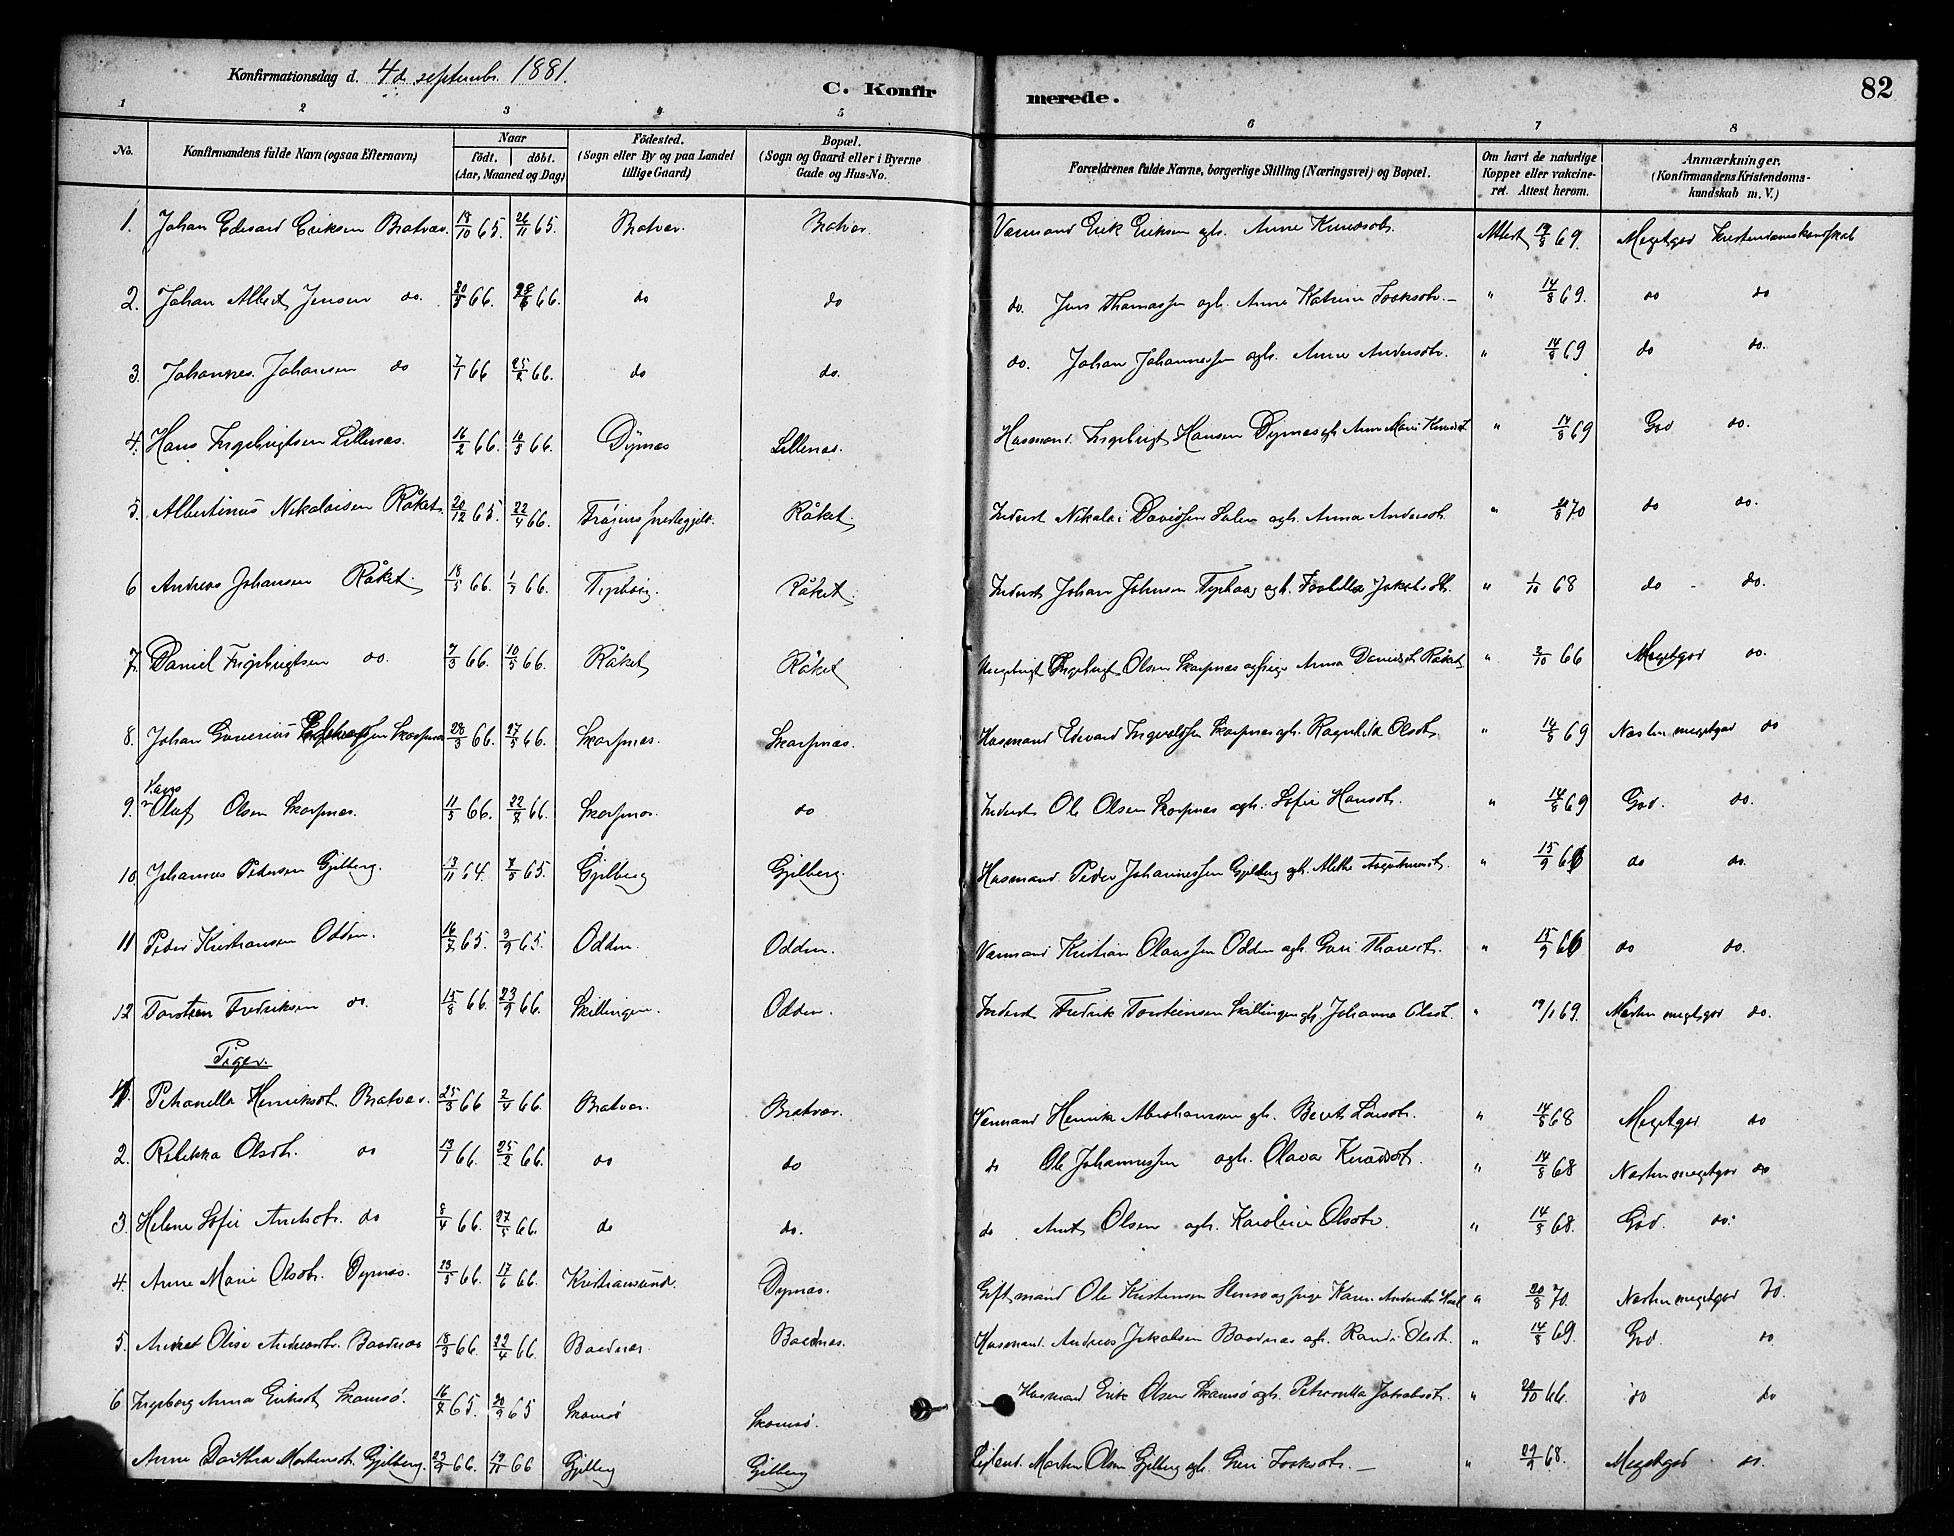 Konfirmationsdag d. 4de septembr. 1881.
C. Konfirmerede.
82
1 2 3 4 5 6 7 8
No. Konfirmandens fulde Navn (ogsaa Efternavn) Naar födt. döbt. (Aar, Maaned og Dag) Födested. (Sogn eller By og paa Landet tillige Gaard) Bopæl. (Sogn og Gaard eller i Byerne Gade og Hus-No. Forældrenes fulde Navne, borgerlige Stilling (Næringsvei) og Bopæl. Om havt de naturlige Kopper eller vakcineret. Attest herom. Anmærkninger. (Konfirmandens Kristendomskundskab m. V.)
1. Johan Edvard Eriksen Bratvær. 18/10 65. 26/11 65. Bratvær. Bratvær. Værmand Erik Eriksen ogh. Anne Knudsdtr. Attest 14/8 69. Megetgod Kristendomskundskab
2. Johan Albert Jensen do. 20/3 66. 66. do do do. Jens Thomassen ogh. Anne Katrine Isaksdtr. — " 14/8 69. do do
3. Johannes Johansen do 7/1 66 25/2 66. do do. do. Johan Johannessen ogh. Anne Andersdtr. " 14/8 69 do do.
4. Hans Ingebrigtsen Lillenæs. 16/2 66. 66. Dyrnæs Lillenæs. Husmand. Ingebrigt Hansen Dyrnæs ogh. Anne Marie Knudsdt. " 14/8 69 God do.
5. Albertinus Nikolaisen Råket. 20/12 65. 22/4 66. Frøjens præstegjeld. Råket Inderst Nikolai Davidsen ogh. Anna Andersdtr. " 20/8 70 do do.
6 Andreas Johansen Råket. 18/5 66. 1/7 66. Råket Inderst Johan Johnsen ogh. Jakobsdtr. " 1/10 68 do - do.
7. Daniel Ingebrigtsen do. 7/3 66. 10/5 66. Råket Råket Ingebrigt Olsen Skarpnæs og pige Anna Danielsdt. Råket " 66 Megetgod do.
8. Johan Skarpnæs 28/3 66. 27/5 66. Skarpnæs. Skarpnæs. Husmand Edvard Skarpnæs ogh. Ragnhild Olsdtr. " 14/8 69 Næsten megetgod do
9. Hans Oluf Olsen Skarpnæs. 11/5 66. 66. Skarpnæs. do Inderst Ole Olsen Skarpnæs ogh. Sofie Hansdtr. " 14/8 69 God. do.
10. Johannes Pedersen Gjelberg. 64. 7/5 65. Gjelberg Gjelberg. Husmand. Peder Johannessen Gjelberg ogh. " 15/9 66 do do.
11 Peder Kristiansen Odden. 16/7 65. 3/9 65. Odden. Odden. Værmand Kristian Olaussen Odden ogh. Guri " 15/9 66 do do.
12 Torstein Fredriksen do. 15/8 66. 23/9 66. Skillingen. Odden. Inderst Fredrik Torsteinsen Skillingen ogh. Johanna Olsdt. " 69. Næsten megetgod do.
Piger.
1. Petronella Henriksdt. Bratvær. 25/3 66 2/4 66. Bratvær. Bratvær. Værmand Henrik Abrahamsen gh. Berit Larsdtr. " 14/8 68 Megetgod do
2. Rebekka Olsdtr. do 13/1 66. 25/2 66. do do do Ole Johannessen ogh. Olava Knudsdt. " 14/8 68 Næsten megetgod do
3. Helene Sofie Arntsdtr. do 8/4 66. 27/5 66. do do. do Arnt Olsen ogh. Karoline Olsdtr. " 14/8 68. God. do.
4. Anne Marie Olsdtr. Dyrnæs. 23/5 66. 17/6 66. Kristiansund. Dyrnæs. Gift mand Ole Kristensen og pige Karen Andersdtr. " 20/8 70. Næsten megetgod do.
5. Olise Andreasdtr. Boednæs 18/3 66. 22/4 66. Boednæs. Boednæs. Husmand. Andreas Jakobsen Boednæs ogh. Randi Olsdt. " 14/8 69. God. do
6 Ingeborg Anna Eriksdt. Skamsø. 16/7 65. 20/9 65 Skamsø Skamsø. Husmand Erik Olsen Skamsø ogh. Petronella Jakobsdt. " 66. do do
Anne Dorthea Mortensdt. Gjelberg. 66. 66 Gjelberg Gjelberg Morten Olsen Gjelberg ogh. Guri Isaksdtr. — " 68. Megetgod do.